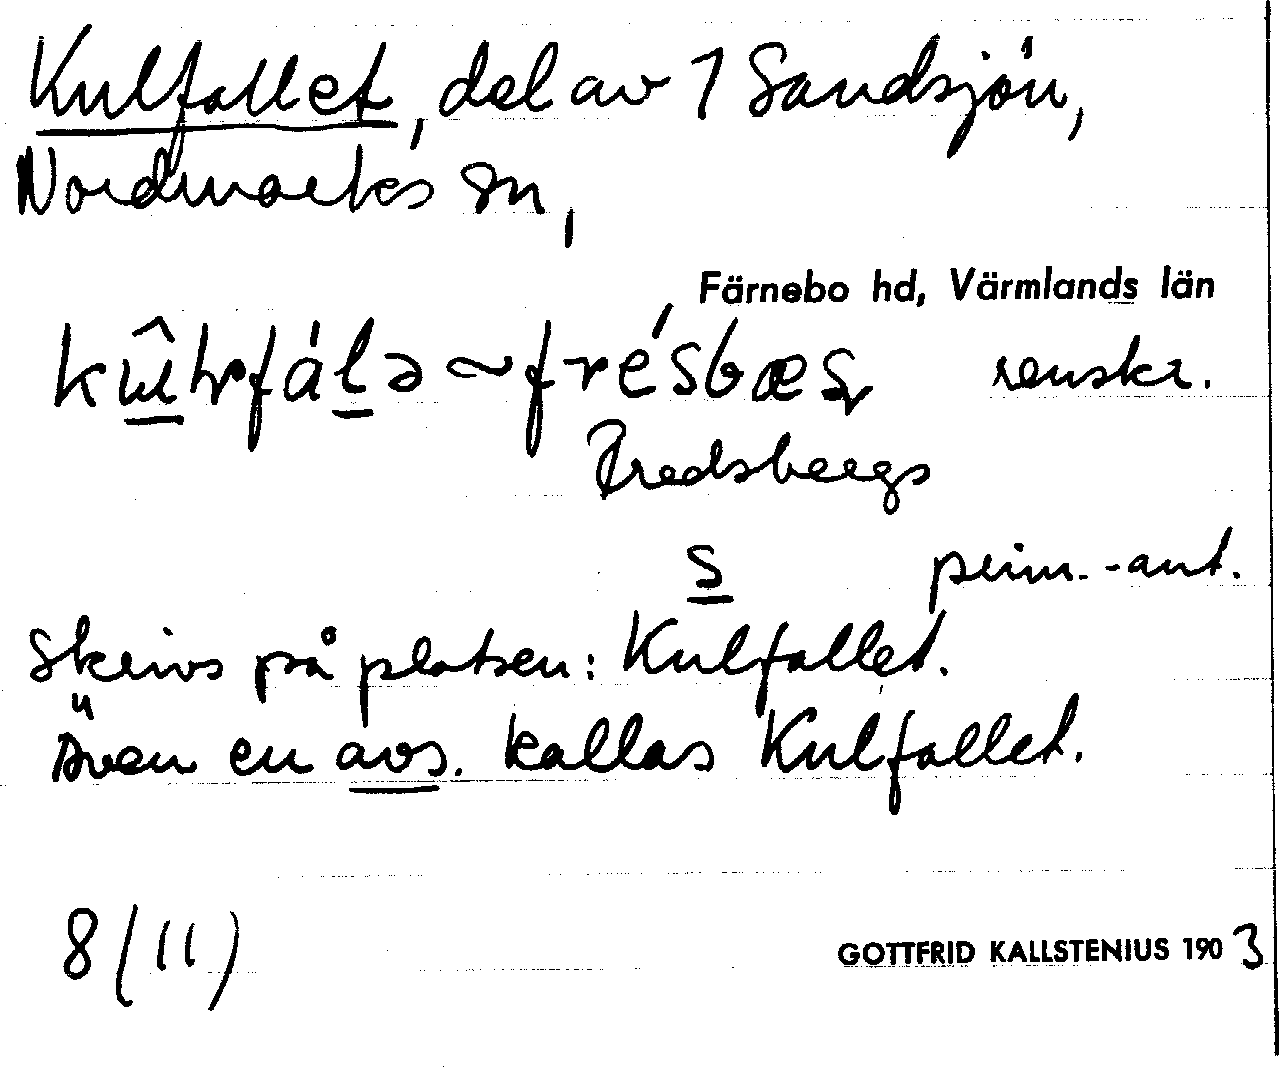 Kulfallet, del av 1 Sandsjön,
Nordmarks sn,
Färnebo hd, Värmlands län
renskr.
Fredsbergs
s prim.-ant.
Skrivs på platsen: Kulfallet.
Även en avs. kallas Kulfallet.
8 (11)
GOTTFRID KALLSTENIUS 1903